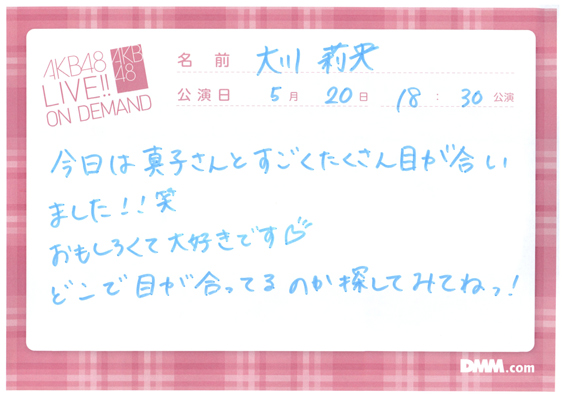 AKB48
LIVE!!
ON DEMAND
AKB
48
名前 大川 莉央
公演日 5月 20日 18 : 30 公演
今日は真子さんとすごくたくさん目が合い
ました!!笑
おもしろくて大好きです♡
どこで目が合ってるのか探してみてねっ!
DMM.com